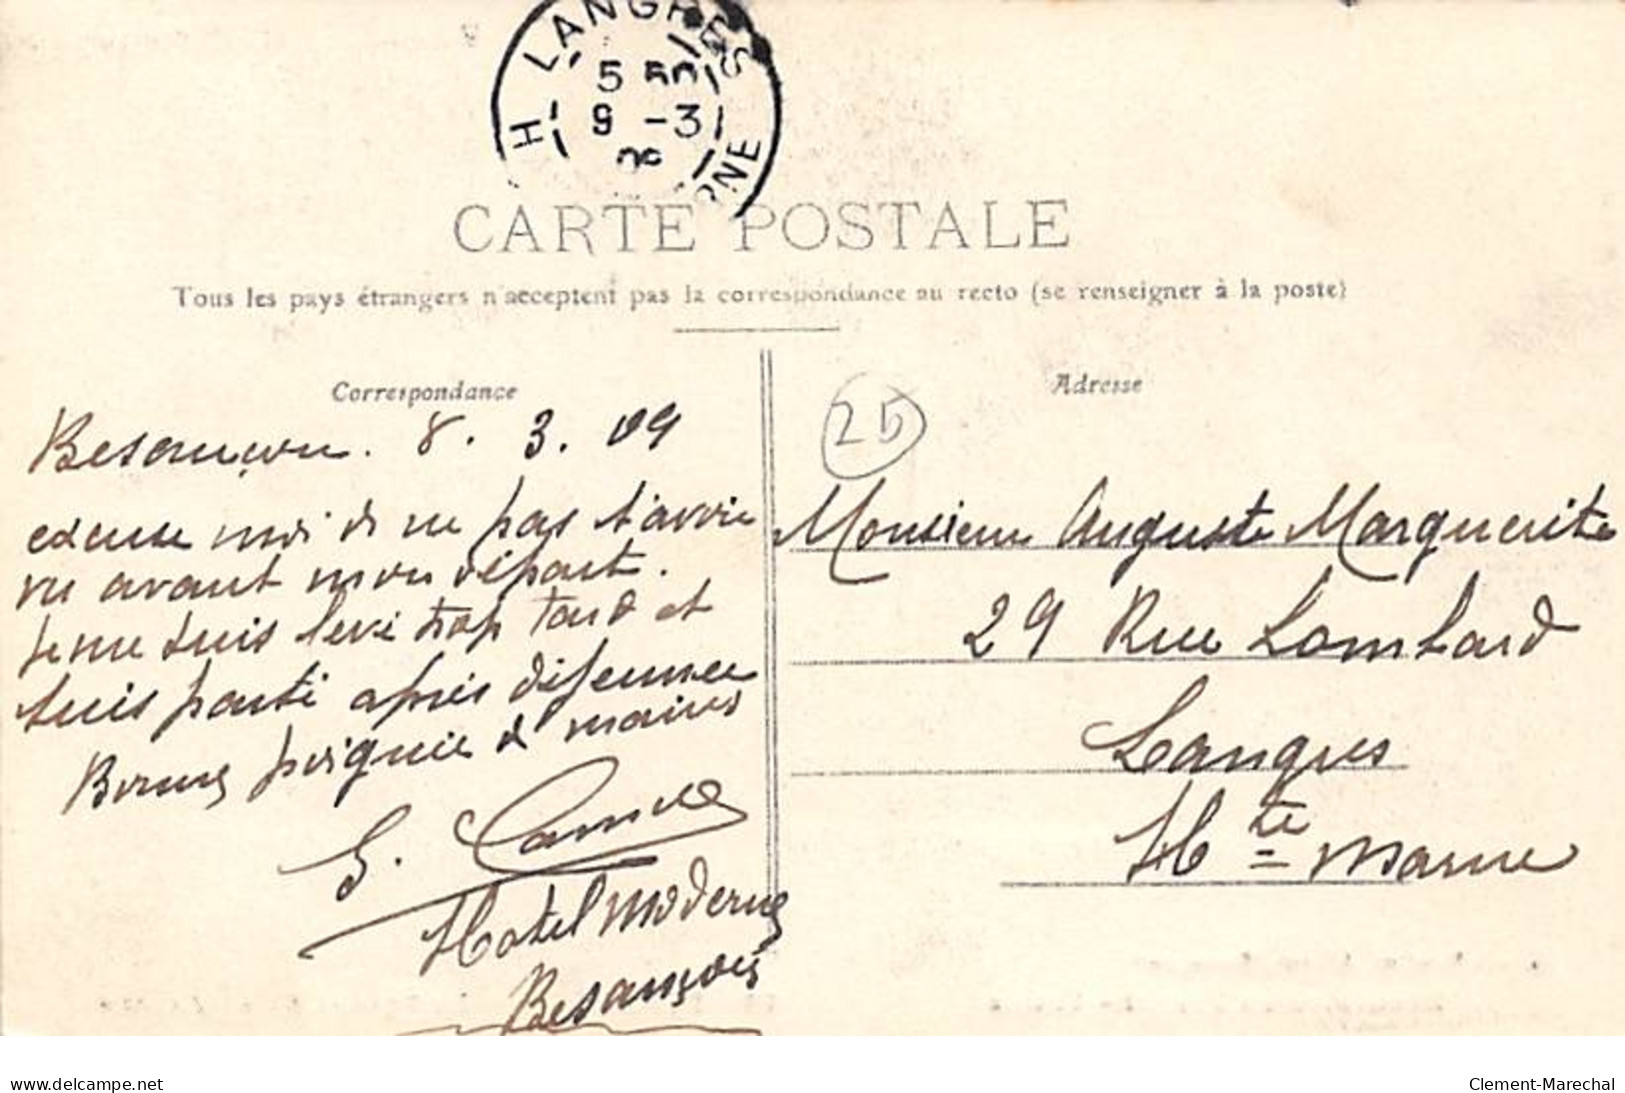 H LANGRES
5 50
9 -3
09
RNE
CARTE POSTALE
Tous les pays étrangers n'acceptent pas la correspondance au recto (se renseigner à la poste)
Correspondance
Adresse
25
Besançon. 8. 3. 09
excuse moi de ne pas t'avoir
vu avant mon départ.
Je me suis levé trop tard et
suis parti après déjeuner
Bonne poignée de mains
G.
Hotel moderne
Besançon
Monsieur Auguste Marguerite
29 Rue Lombard
Langres
Hte Marne
delcampe.net
Clement-Marechal